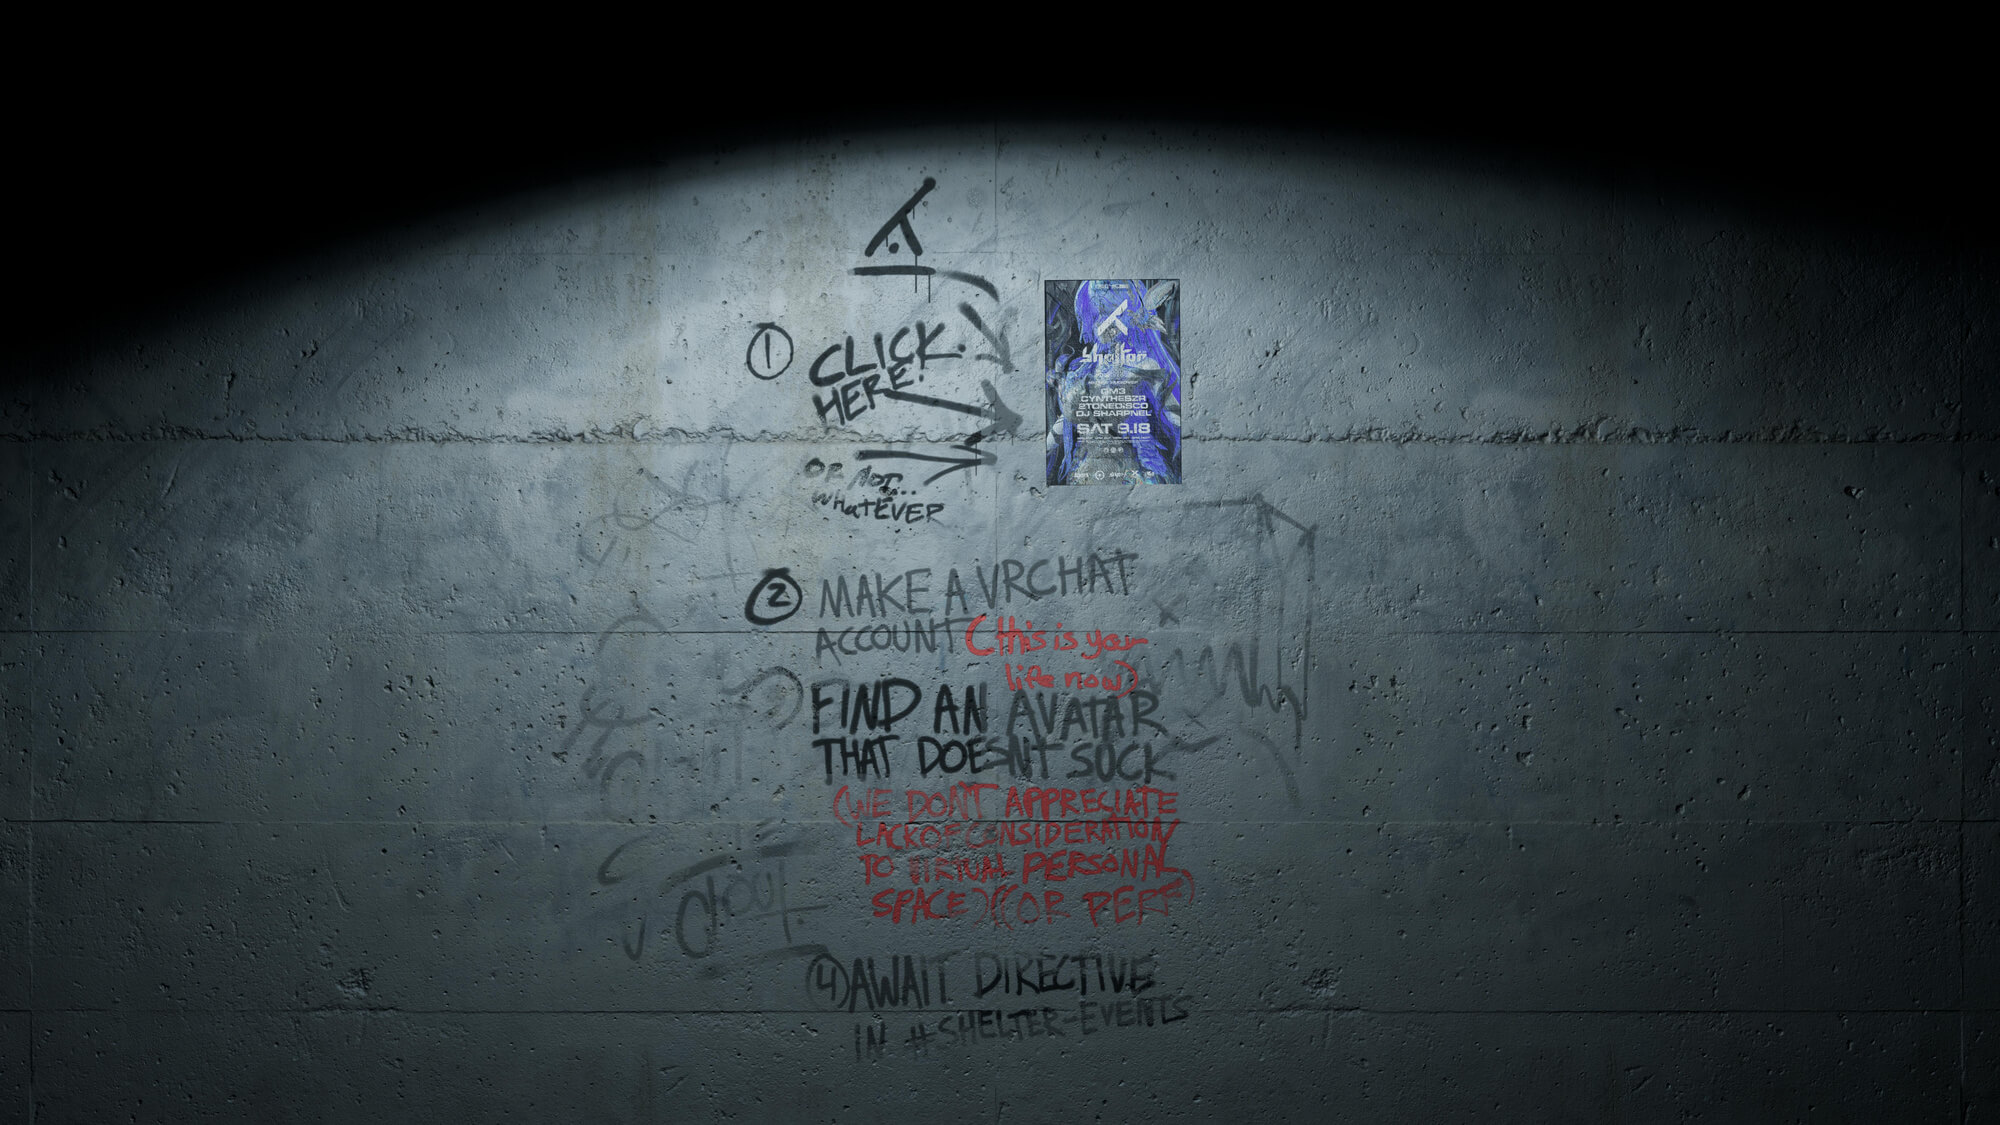 1 CLICK
HERE!
OR NOT...
WHATEVER
shelter
GM3
CYNTHESZR
2TONEDISCO
DJ SHARPNEL
SAT 9.18
2 MAKE A VRCHAT
ACCOUNT (this is your
life now)
FIND AN AVATAR
THAT DOESN'T SUCK
(WE DON'T APPRECIATE
LACK OF CONSIDERATION
TO VIRTUAL PERSONAL
SPACE)((OR PERF)
4 AWAIT DIRECTIVE
IN #SHELTER-EVENTS